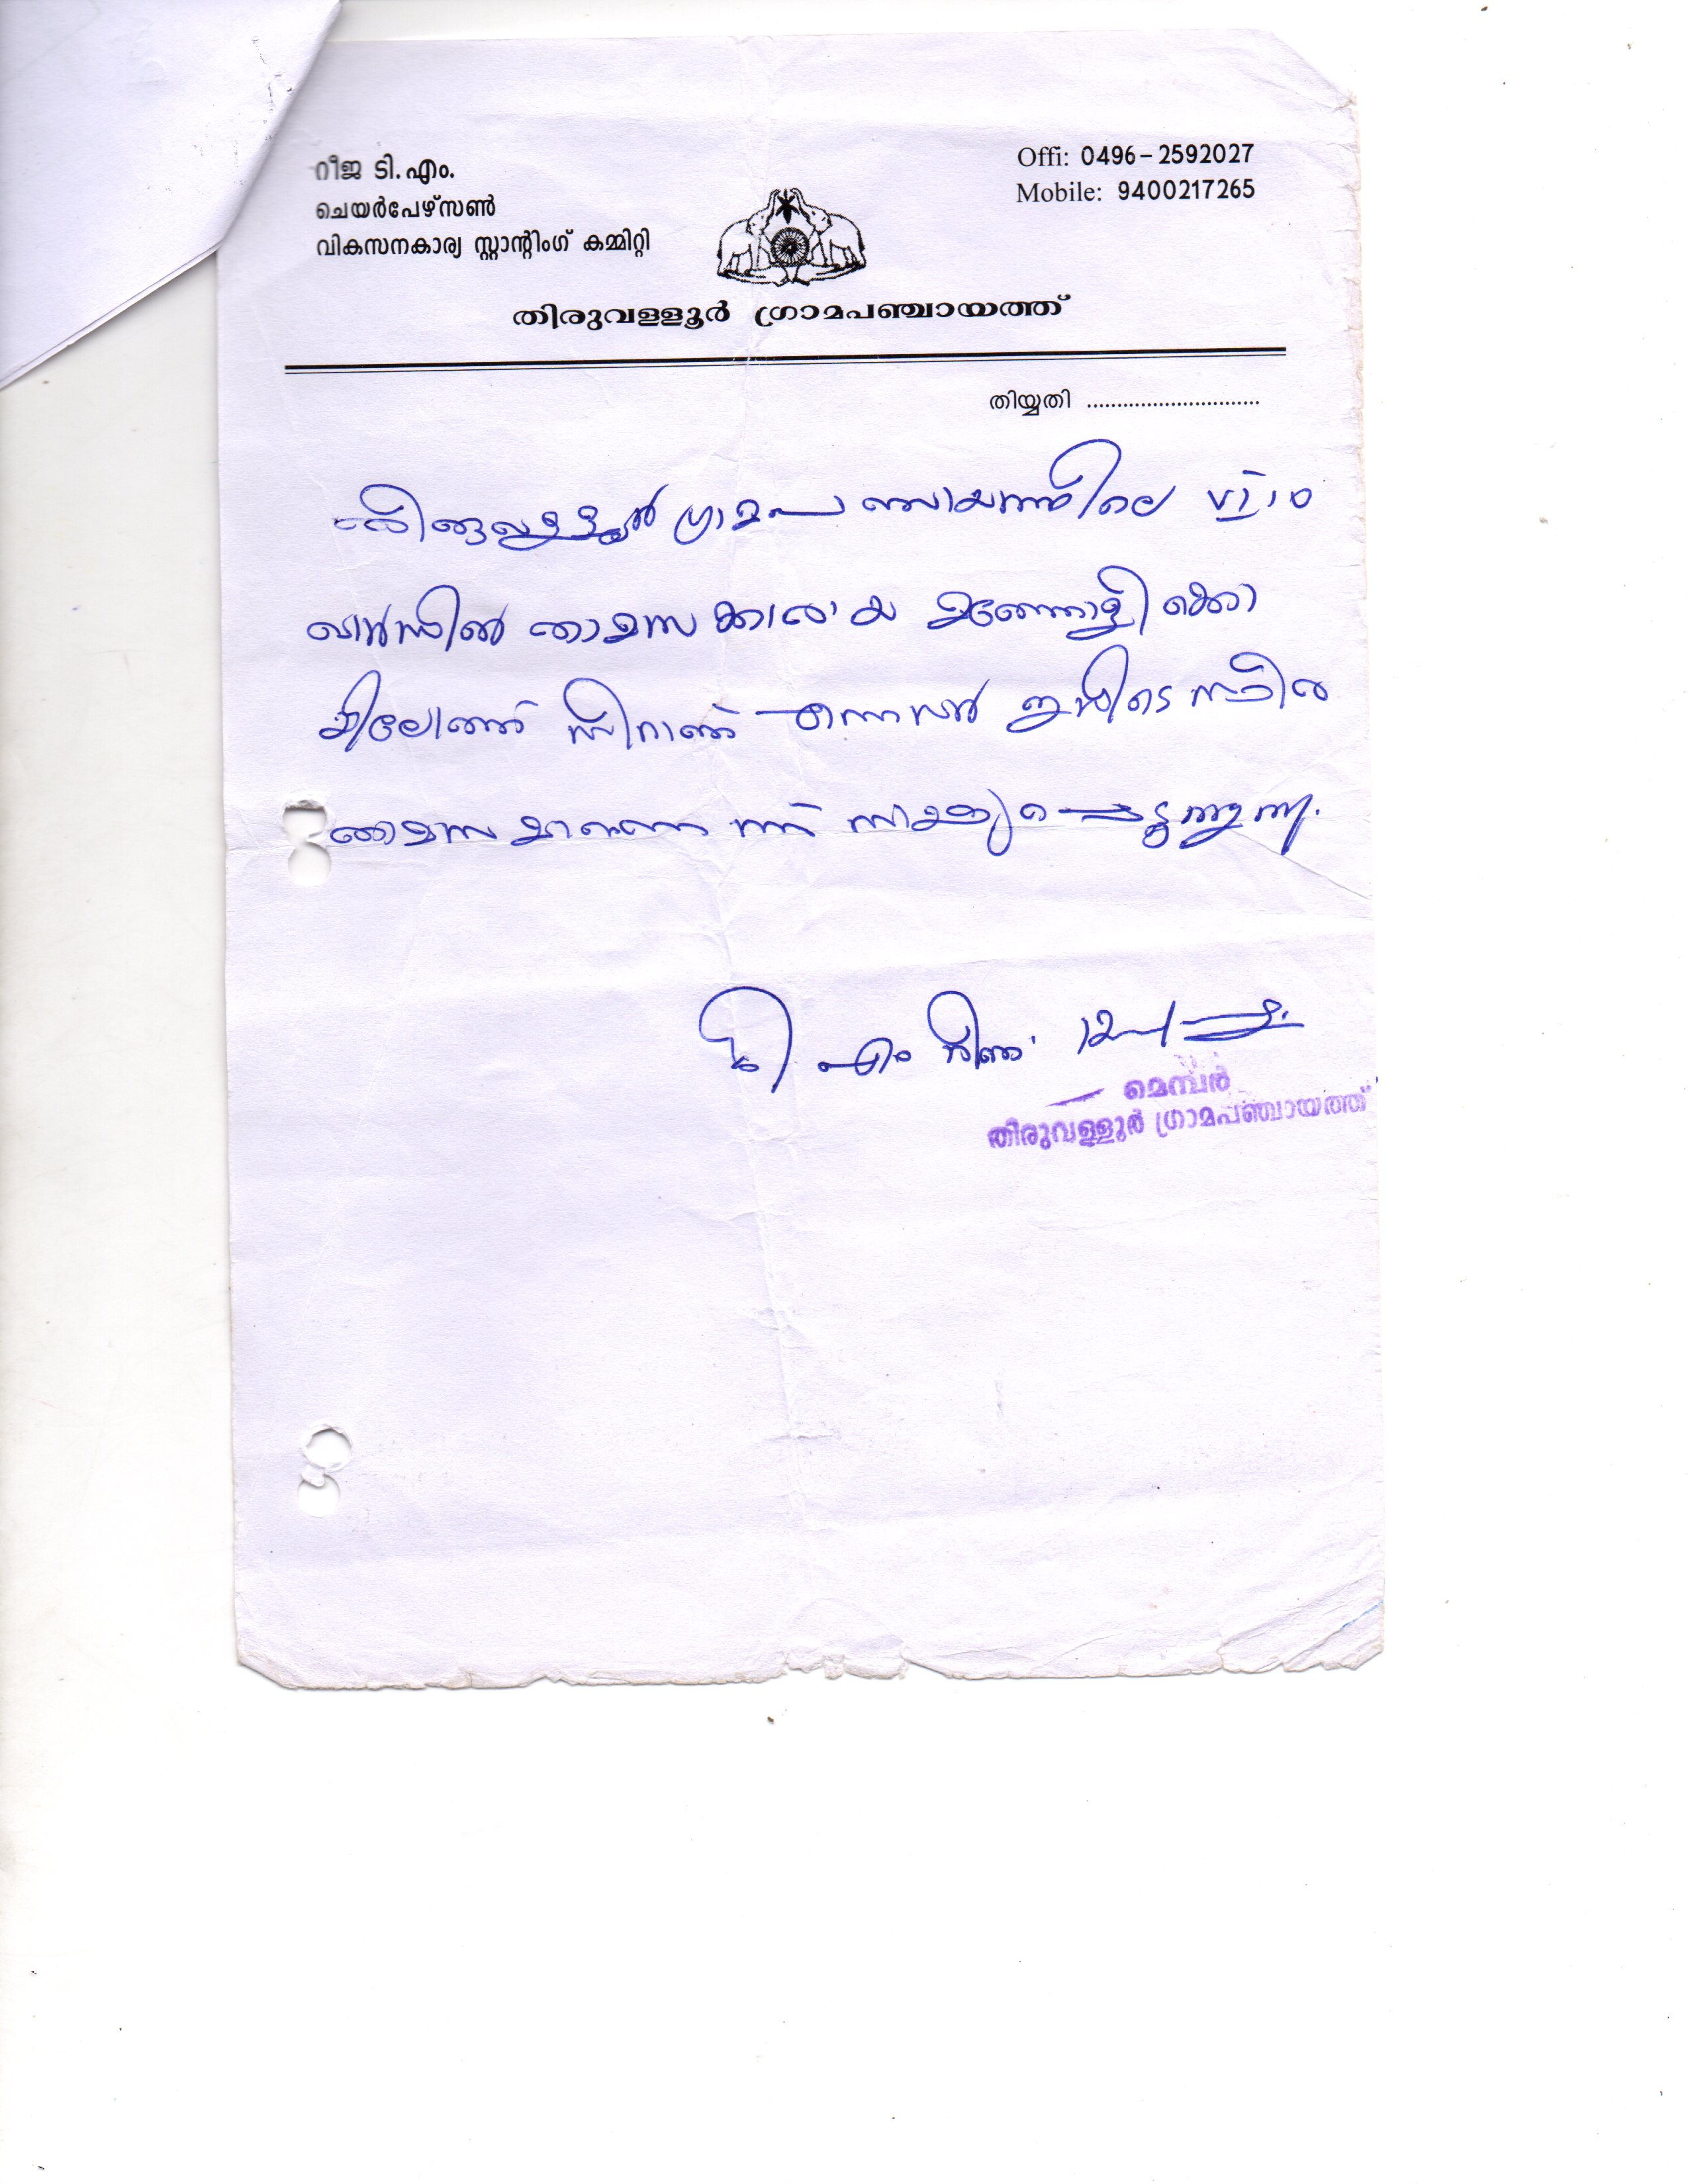 റീജ ടി.എം.
ചെയർപേഴ്സൺ
വികസനകാര്യ സ്റ്റാന്റിംഗ് കമ്മിറ്റി
Offi: 0496-2592027
Mobile: 9400217265
തിരുവള്ളൂർ ഗ്രാമപഞ്ചായത്ത്
തിയ്യതി ............................
തിരുവള്ളൂർ ഗ്രാമപഞ്ചായത്തിലെ VI, 10
വാർഡിൽ താമസക്കാരായ
എന്നവർ ഇവിടെ സ്ഥിര
താമസമാണെന്ന് സാക്ഷ്യപ്പെടുത്തുന്നു.
ടി എം റീജ
മെമ്പർ
തിരുവള്ളൂർ ഗ്രാമപഞ്ചായത്ത്